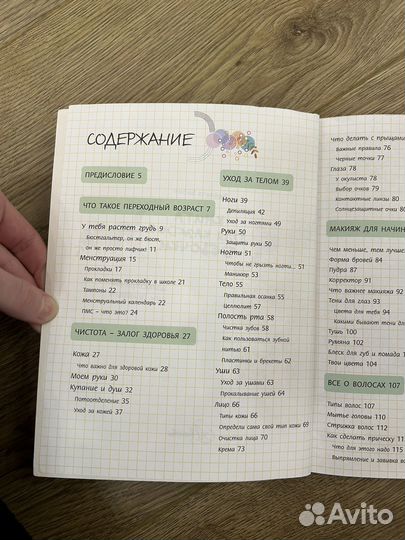 СОДЕРЖАНИЕ
ПРЕДИСЛОВИЕ 5
ЧТО ТАКОЕ ПЕРЕХОДНЫЙ ВОЗРАСТ 7
У тебя растет грудь 9
Бюстгальтер, он же бюст,
он же просто лифчик! 11
Менструация 15
Прокладки 17
Как поменять прокладку в школе 21
Тампоны 22
Менструальный календарь 22
ПМС – что это? 24
ЧИСТОТА – ЗАЛОГ ЗДОРОВЬЯ 27
Кожа 27
Что важно для здоровой кожи 28
Моем руки 30
Купание и душ 32
Потоотделение 35
Уход за кожей 37
УХОД ЗА ТЕЛОМ 39
Ноги 39
Депиляция 42
Уход за ногтями 49
Руки 50
Защити руки 50
Ногти 51
Чтобы не грызть ногти... 51
Маникюр 53
Тело 55
Правильная осанка 55
Целлюлит 57
Полость рта 58
Чистка зубов 58
Как пользоваться зубной
нитью 61
Пластинки и брекеты 62
Уши 63
Уход за ушами 63
Прокалывание ушей 64
Лицо 66
Типы кожи 66
Определи сама свой тип кожи 69
Очистка лица 70
Крема 73
Что делать с прыщами
Важные правила 76
Черные точки 77
Глаза 78
У окулиста 78
Выбор очков 79
Контактные линзы 80
Солнцезащитные очки 80
МАКИЯЖ ДЛЯ НАЧИН
Чем меньше, тем лучше
Форма бровей 84
Пудра 87
Корректор 91
Что важнее макияжа 92
Тени для глаз 93
Цвета для тебя 94
Какими бывают тени дл
Тушь 100
Румяна 102
Блеск для губ и помада 1
Твои цвета 104
ВСЕ О ВОЛОСАХ 107
Типы волос 107
Мытье головы 110
Стрижка волос 112
Как сделать прическу 11
Что для этого надо 115
Выпрямление и завивка во
Avito